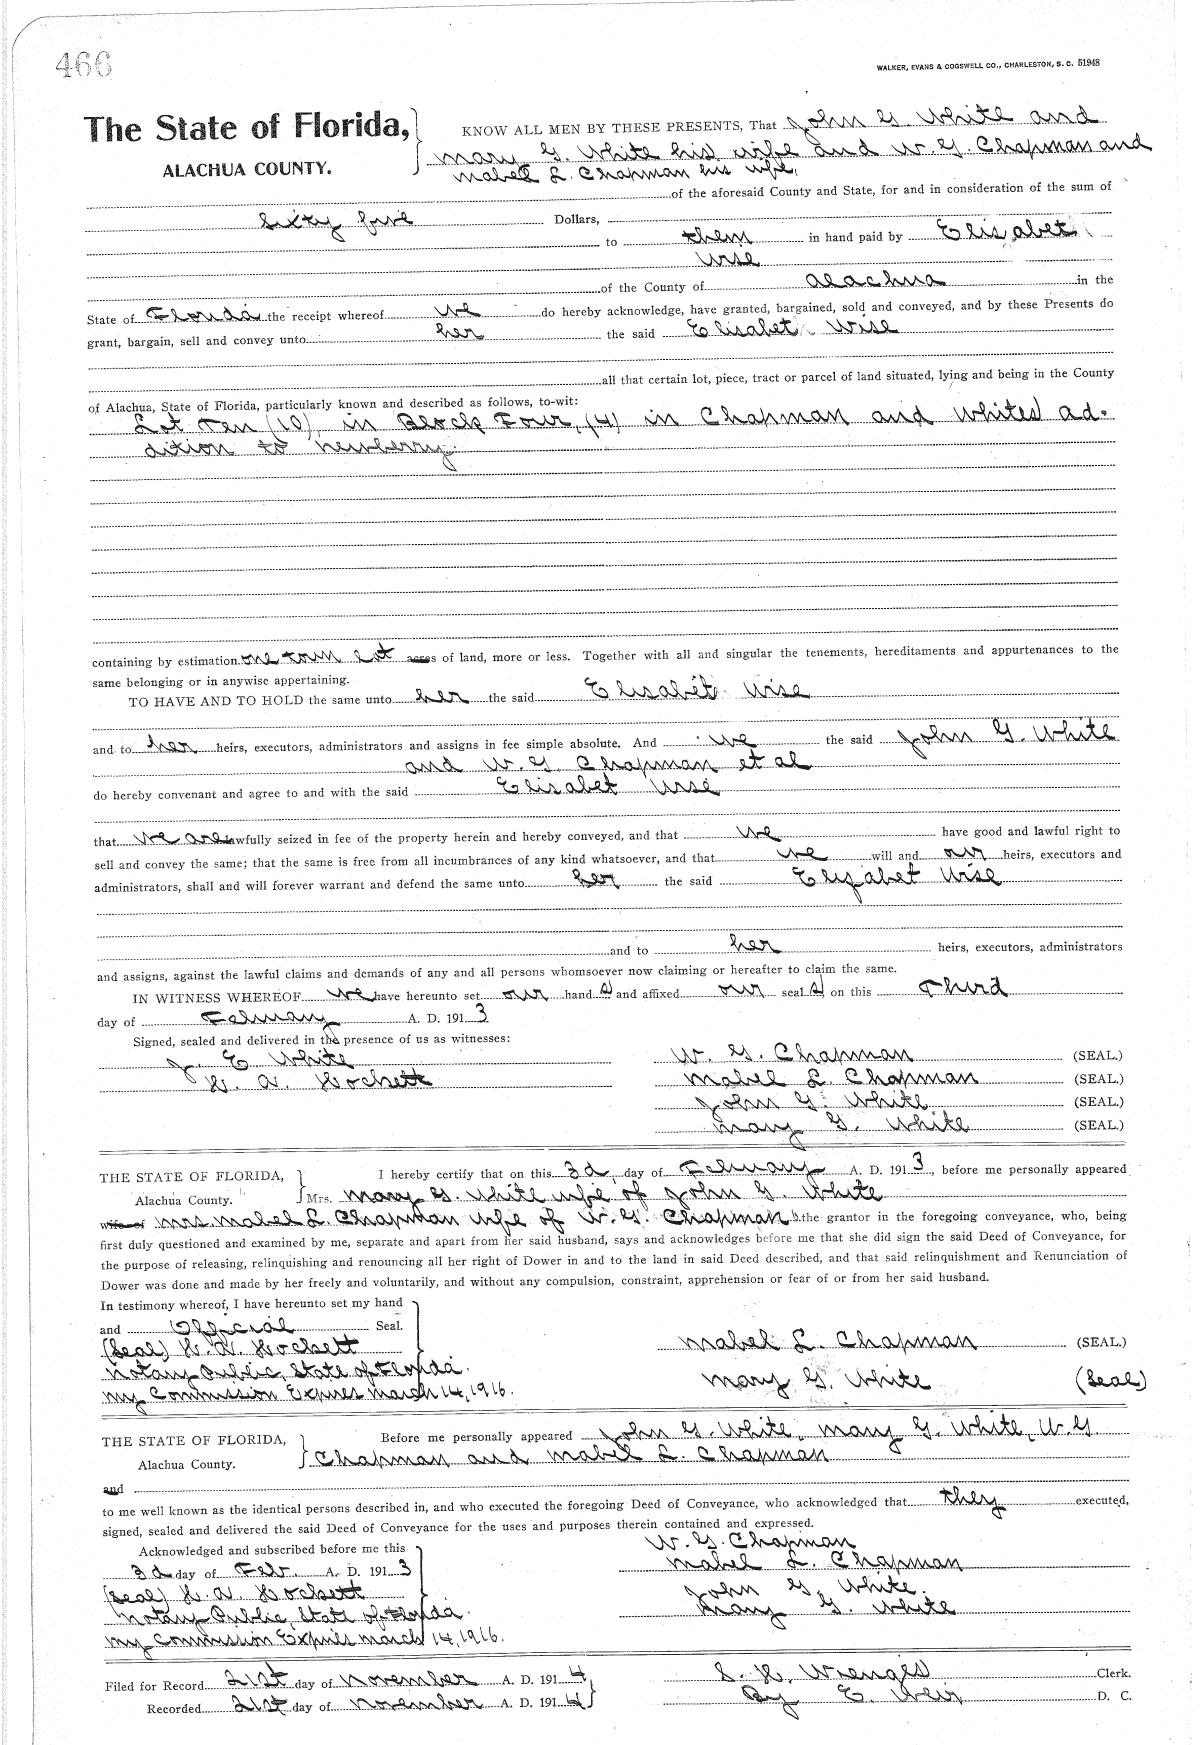 466
WALKER, EVANS & COGSWELL CO., CHARLESTON, S. C. 51948
The State of Florida,
ALACHUA COUNTY.
KNOW ALL MEN BY THESE PRESENTS, That John G. White and
Mary G. White his wife and W. G. Chapman and
Mabel L. Chapman his wife,
of the aforesaid County and State, for and in consideration of the sum of
Sixty five Dollars,
to them in hand paid by Elisabet
Wise
of the County of Alachua in the
State of Florida the receipt whereof we do hereby acknowledge, have granted, bargained, sold and conveyed, and by these Presents do
grant, bargain, sell and convey unto her the said Elisabet Wise
all that certain lot, piece, tract or parcel of land situated, lying and being in the County
of Alachua, State of Florida, particularly known and described as follows, to-wit:
Lot Ten (10), in Block Four, (4) in Chapman and Whites ad-
dition to Newberry.
containing by estimation one town lot acres of land, more or less. Together with all and singular the tenements, hereditaments and appurtenances to the
same belonging or in anywise appertaining.
TO HAVE AND TO HOLD the same unto her the said Elisabet Wise
and to her heirs, executors, administrators and assigns in fee simple absolute. And we the said John G. White
and W. G Chapman et al
do hereby convenant and agree to and with the said Elisabet Wise
that we are lawfully seized in fee of the property herein and hereby conveyed, and that we have good and lawful right to
sell and convey the same; that the same is free from all incumbrances of any kind whatsoever, and that we will and our heirs, executors and
administrators, shall and will forever warrant and defend the same unto her the said Elizabet Wise
and to her heirs, executors, administrators
and assigns, against the lawful claims and demands of any and all persons whomsoever now claiming or hereafter to claim the same.
IN WITNESS WHEREOF we have hereunto set our hand s and affixed our seal s on this Third
day of February A. D. 191 3
Signed, sealed and delivered in the presence of us as witnesses:
J. E White
W. G. Chapman (SEAL.)
H. A. Hockett
Mabel L. Chapman (SEAL.)
John G. White (SEAL.)
Mary G. White (SEAL.)
THE STATE OF FLORIDA,
Alachua County.
I hereby certify that on this 3d day of February A. D. 191 3, before me personally appeared
Mrs. Mary G. White wife of John G. White
wife of Mrs Mabel L. Chapman wife of W. G. Chapman the grantor in the foregoing conveyance, who, being
first duly questioned and examined by me, separate and apart from her said husband, says and acknowledges before me that she did sign the said Deed of Conveyance, for
the purpose of releasing, relinquishing and renouncing all her right of Dower in and to the land in said Deed described, and that said relinquishment and Renunciation of
Dower was done and made by her freely and voluntarily, and without any compulsion, constraint, apprehension or fear of or from her said husband.
In testimony whereof, I have hereunto set my hand
and Official Seal.
(Seal) H. A. Hockett
Mabel L. Chapman (SEAL.)
Notary Public, State of Florida.
Mary G. White (Seal)
My Commission Expires March 14, 1916.
THE STATE OF FLORIDA,
Alachua County.
Before me personally appeared John G. White, Mary G. White, W. G.
Chapman and Mabel L. Chapman
and
to me well known as the identical persons described in, and who executed the foregoing Deed of Conveyance, who acknowledged that they executed,
signed, sealed and delivered the said Deed of Conveyance for the uses and purposes therein contained and expressed.
Acknowledged and subscribed before me this
W. G. Chapman
3d day of Feb. A. D. 191 3
Mabel L. Chapman
(Seal) H. A. Hockett
John G. White.
Notary Public State of Florida.
Mary G. White
My Commission Expires March 14, 1916.
Filed for Record 21st day of November A. D. 191 4
S. H. Wienges Clerk.
Recorded 21st day of November A. D. 191 4
By E. Weir D. C.